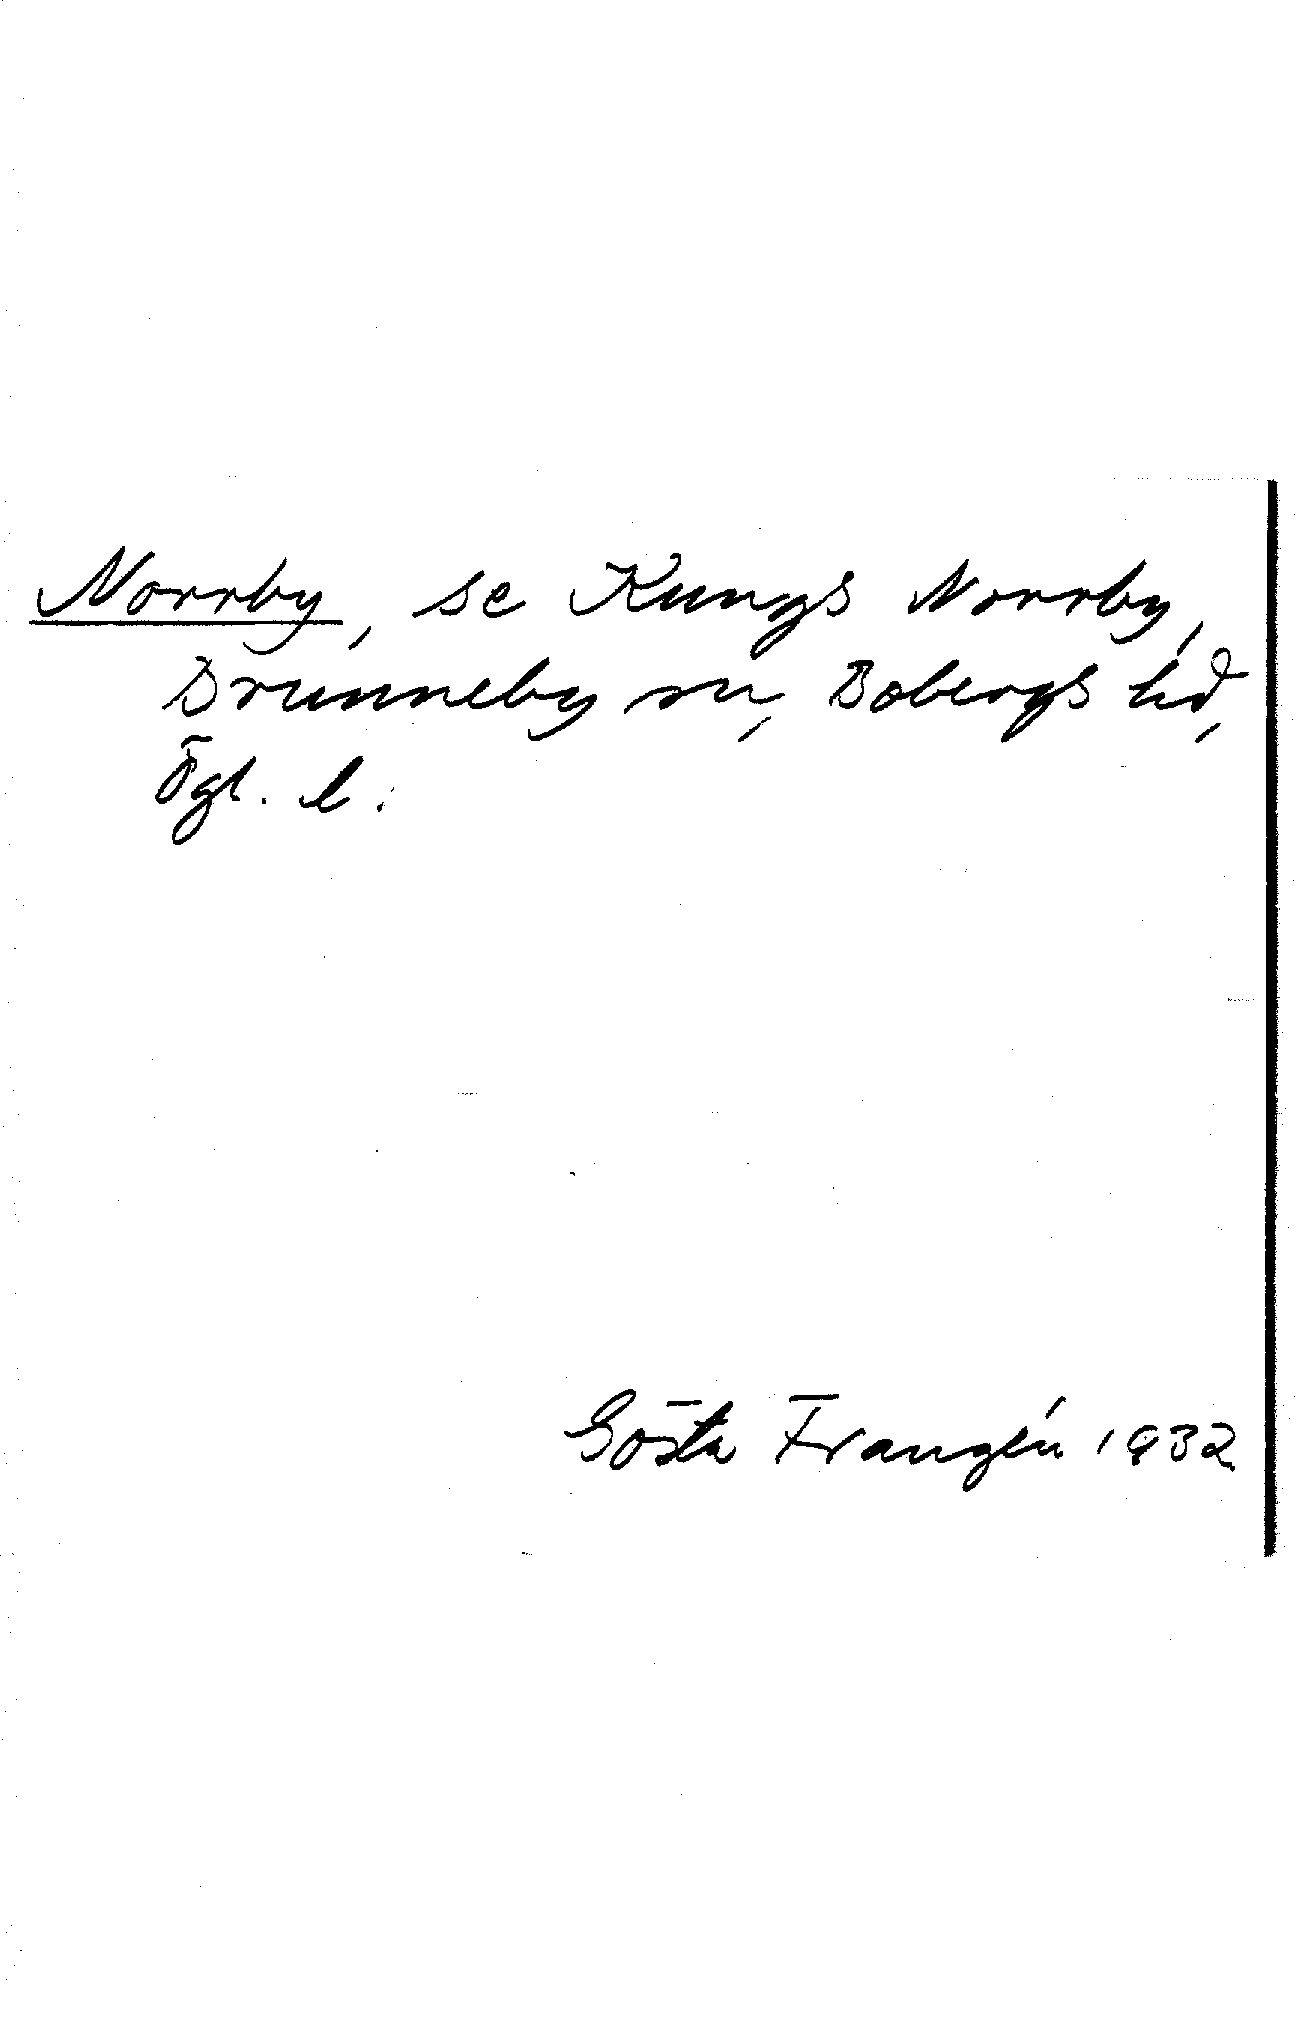 Norrby, se Kungs Norrby,
Brunneby sn, Bobergs hd,
Ögl. l.
Gösta Franzén 1932